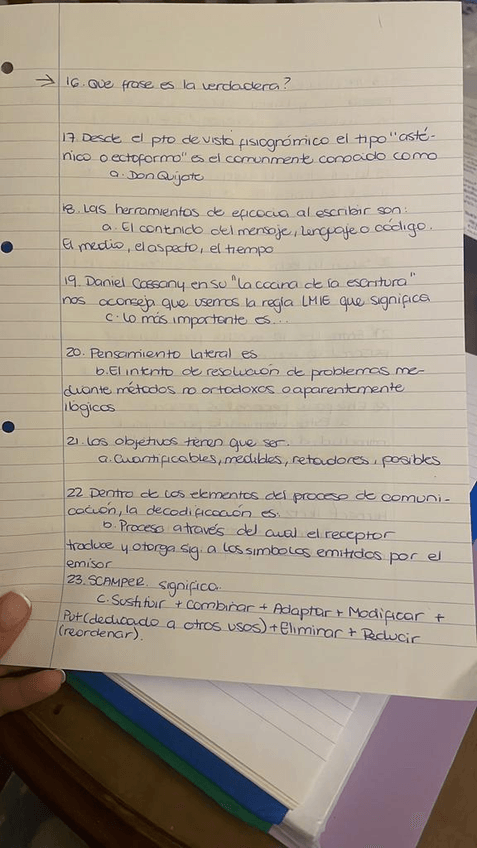 → 16. Que frase es la verdadera?
17. Desde el pto de vista fisiognómico el tipo "asté-
nico o ectoformo" es el comunmente conocido como
a. Don Quijote
18. Las herramientas de eficacia al escribir son:
a. El contenido del mensaje, lenguaje o código.
El medio, el aspecto, el tiempo
19. Daniel Cassany en su "la cocina de la escritura"
nos aconseja que usemos la regla LMIE que significa
c. Lo más importante es...
20. Pensamiento lateral es
b. El intento de resolución de problemas me-
diante métodos no ortodoxos o aparentemente
ilógicos
21. Los objetivos tienen que ser:
a. Cuantificables, medibles, retadores, posibles
22. Dentro de los elementos del proceso de comuni-
cación, la decodificación es:
b. Proceso a través del cual el receptor
traduce y otorga sig. a los simbolos emitidos por el
emisor
23. SCAMPER significa.
c. Sustituir + Combinar + Adaptar + Modificar +
Put (dedicado a otros usos) + Eliminar + Reducir
(reordenar).